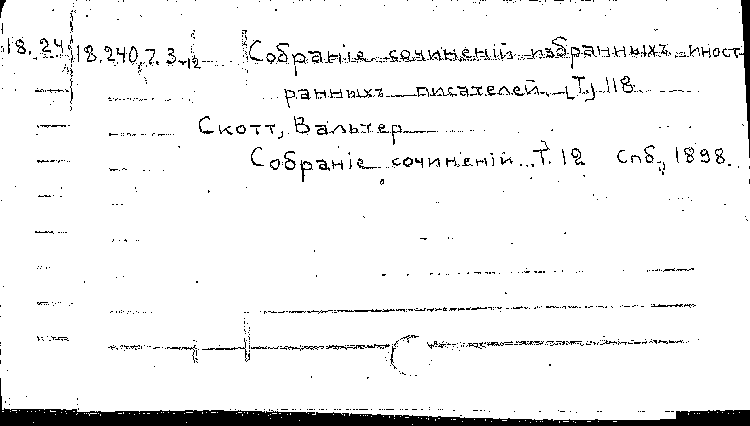 18.24 18.240.7.3-12 Собраніе сочиненій избранныхъ иност-
ранныхъ писателей. [Т.] 118
Скотт, Вальтер
Собраніе сочиненій. Т. 12 Спб., 1898.